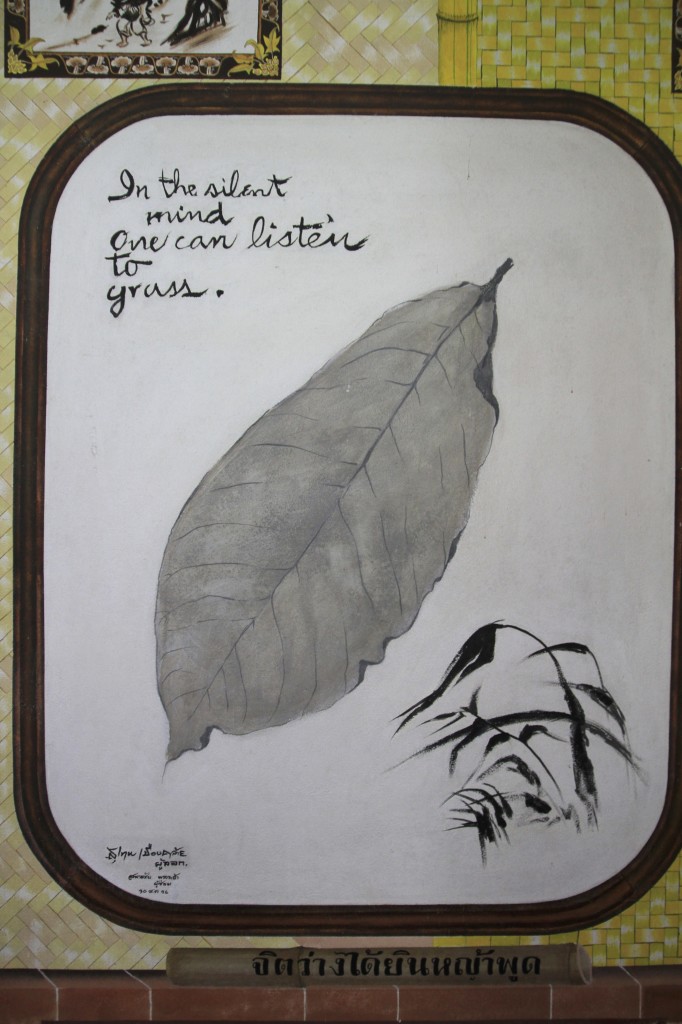 In the silent
mind
One can listen
to
grass.
ผู้ลอก.
จิตว่างได้ยินหญ้าพูด